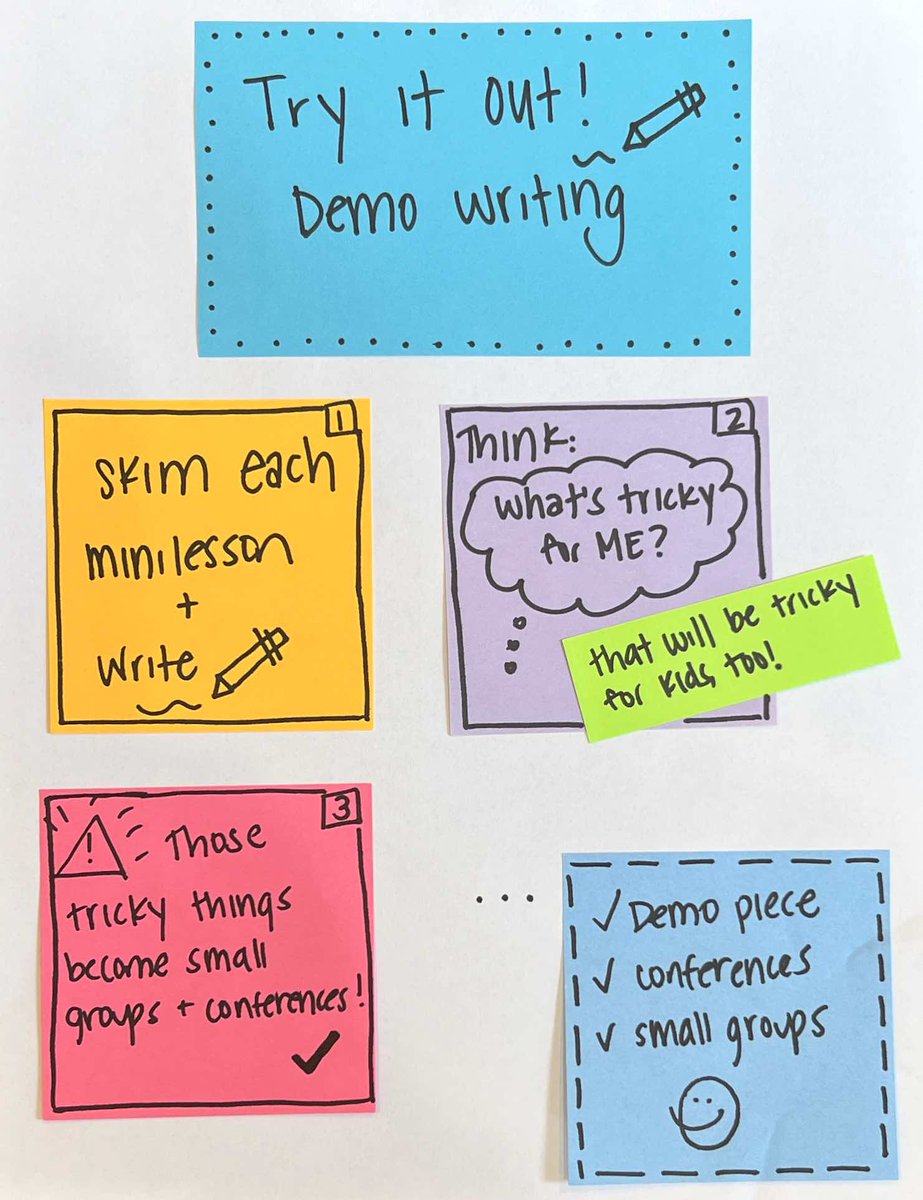 Try it out!
Demo writing
1
skim each
minilesson
+
write
2
Think:
what's tricky
for ME?
that will be tricky
for kids, too!
3
! Those
tricky things
become small
groups + conferences!
✓
...
✓ Demo piece
✓ conferences
✓ small groups